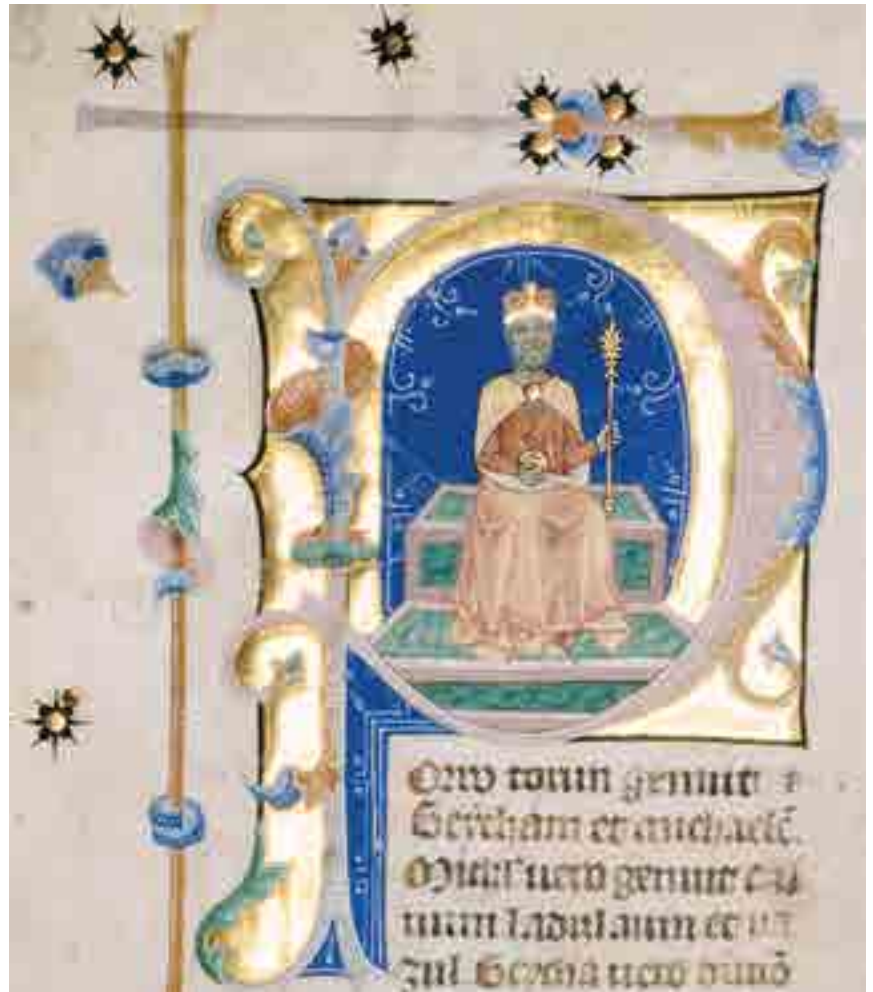 POrro toxun genuit
Geycham et michaelē.
Michl' uero genuit cal
uum ladizlaum et ua
zul. Geycha uero